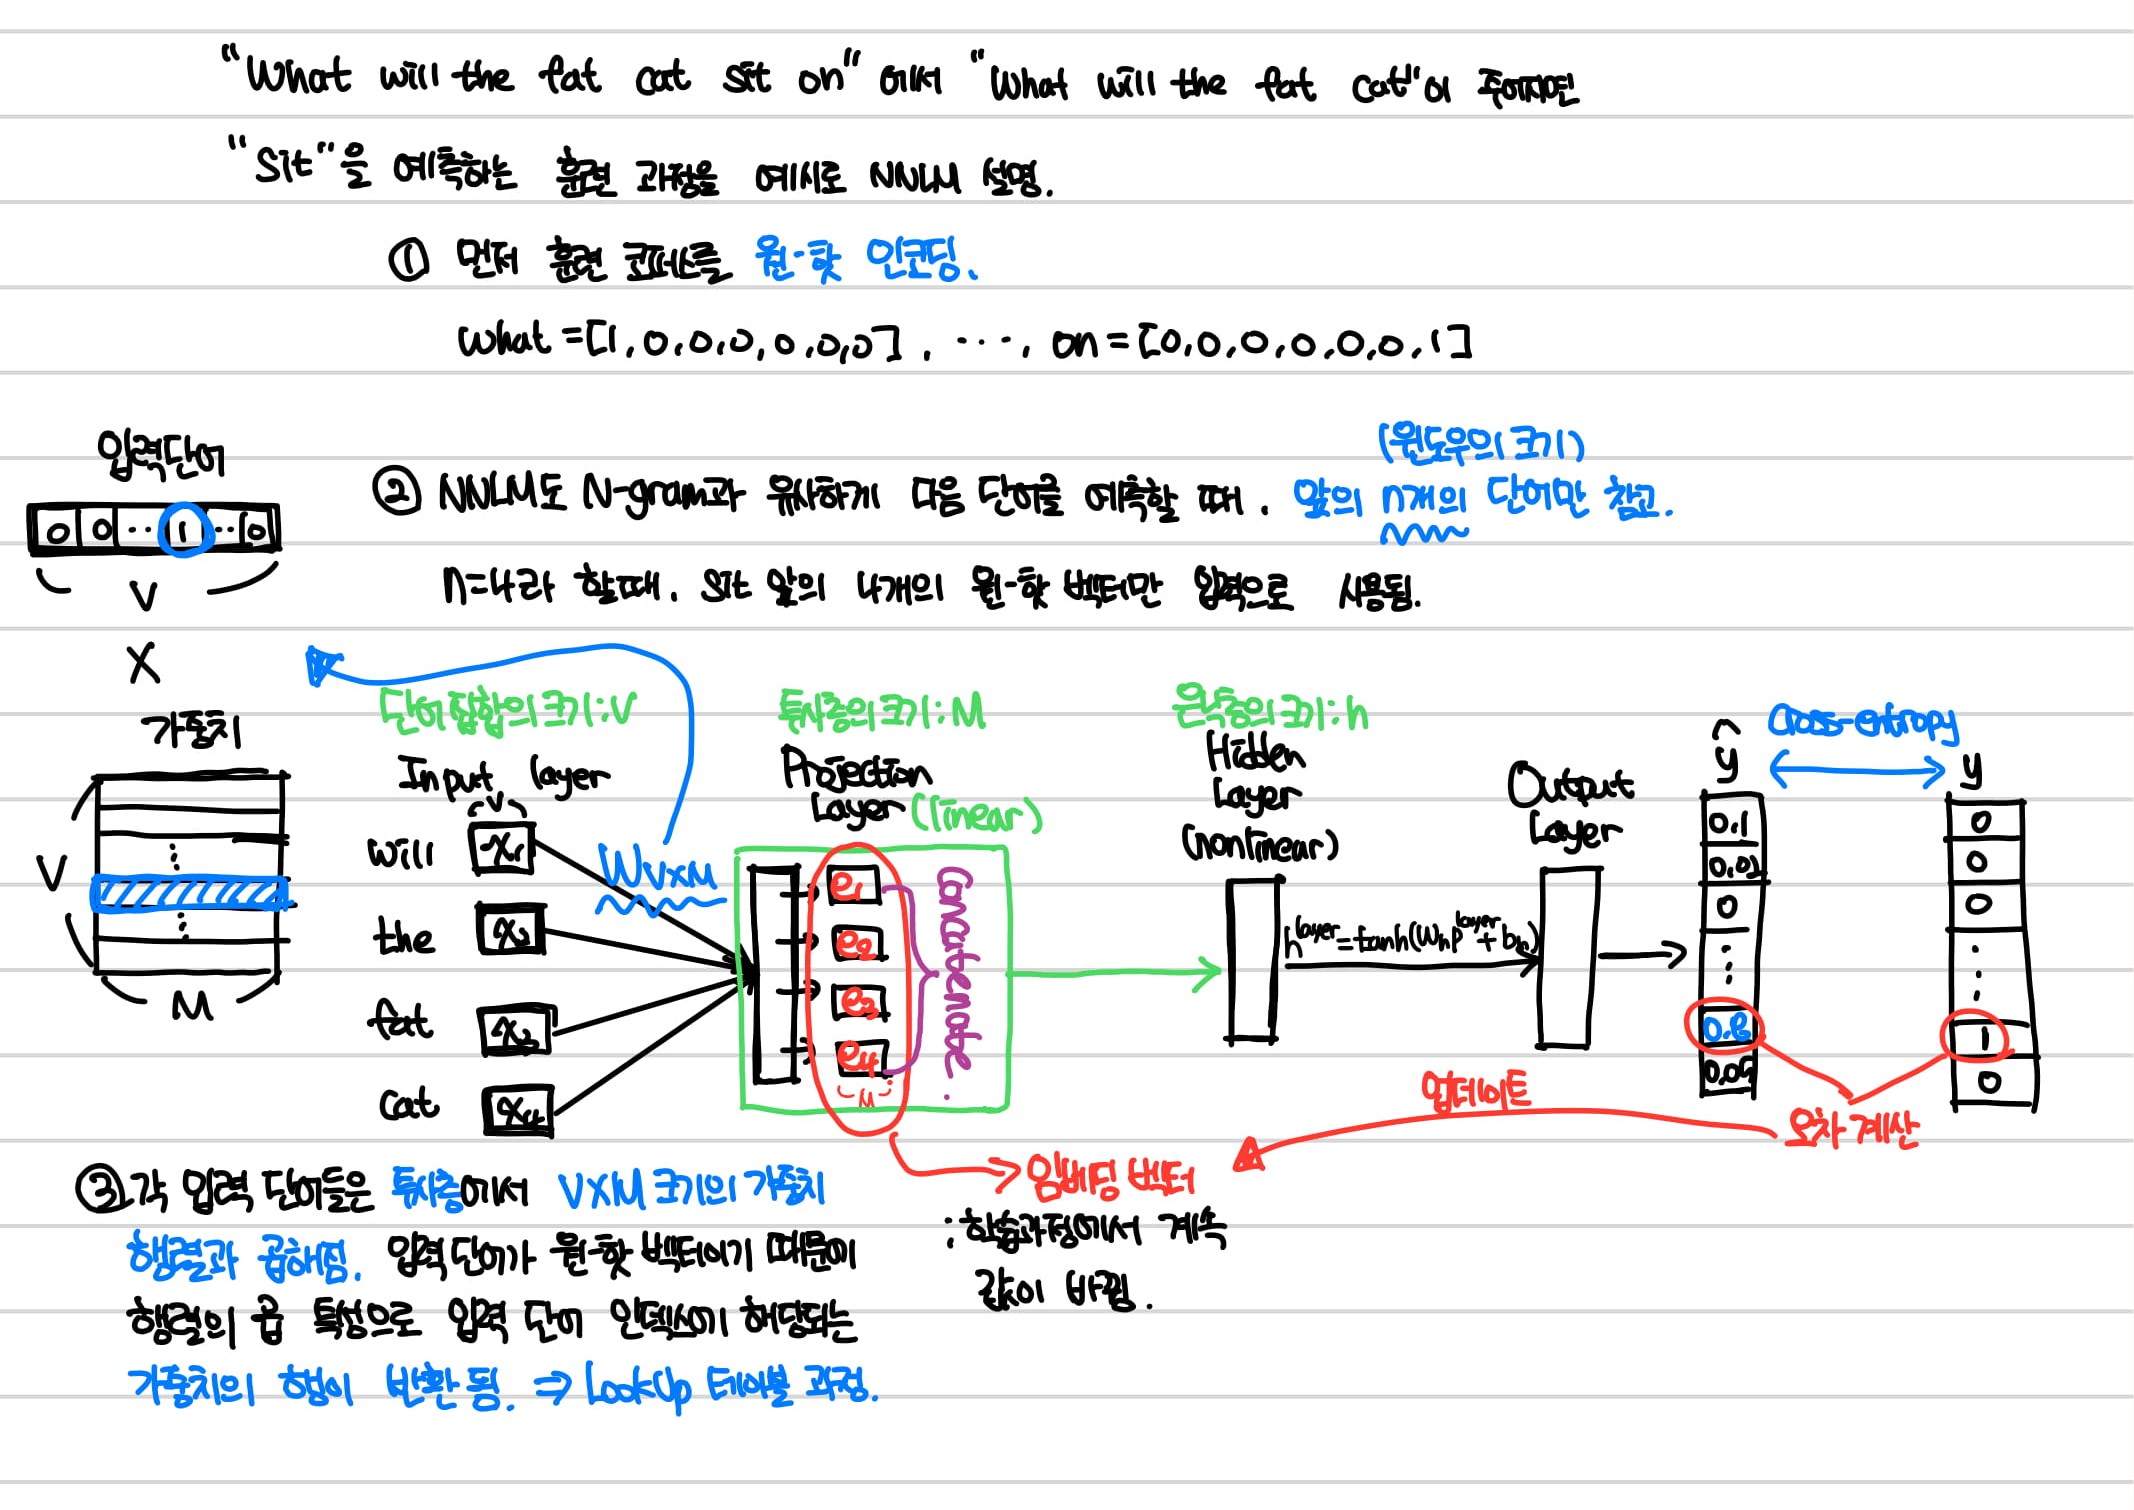 "What will the fat cat sit on" 에서 "What will the fat cat"이 주어지면
"Sit"을 예측하는 훈련 과정을 예시로 NNLM 설명.
① 먼저 훈련 코퍼스를 원-핫 인코딩.
What = [1, 0, 0, 0, 0, 0, 0], ..., on = [0, 0, 0, 0, 0, 0, 1]
(윈도우의 크기)
② NNLM도 N-gram과 유사하게 다음 단어를 예측할 때, 앞의 n개의 단어만 참고.
n=4라 할때, Sit 앞의 4개의 원-핫 벡터만 입력으로 사용됨.
입력단어
0 0 ·· 1 ·· 0
V
X
가중치
V
M
단어 집합의 크기 : V
Input layer
V
will x₁
the x₂
fat x₃
cat x₄
W V×M
투사층의 크기 : M
Projection
Layer (linear)
e₁
e₂
e₃
e₄
M
Concatenate.
은닉층의 크기 : h
Hidden
Layer
(nonlinear)
h^layer = tanh(W_h p^layer + b_h)
Output
Layer
ŷ
0.1
0
⋮
Cross-entropy
y
0
0
0
⋮
1
0
오차 계산
업데이트
임베딩 벡터
: 학습과정에서 계속
값이 바뀜.
③ 각 입력 단어들은 투사층에서 V×M 크기의 가중치
행렬과 곱해짐. 입력 단어가 원-핫 벡터이기 때문에
행렬의 곱 특성으로 입력 단어 인덱스에 해당되는
가중치의 행이 반환됨. ⇒ LookUp 테이블 과정.